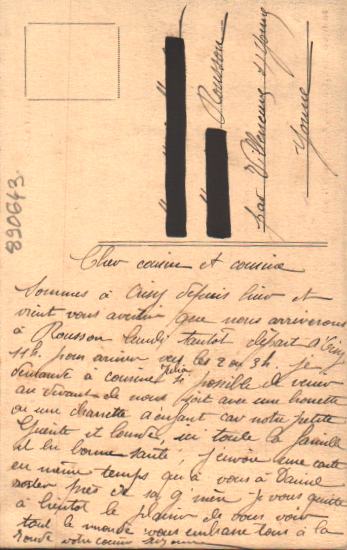 Rousson
par Villeneuve s/ Yonne
Yonne
890643
Cher cousin et cousine
Sommes à depuis hier et
vient vous avertir que nous arriverons
à Rousson lundi tantôt départ d'
11h. pour arriver vers les 2 ou 3h. je
demande à cousine Julia si possible de venir
au devant de nous soit avec une brouette
ou une charrette a enfant car notre petite
et lourde, ici toute la famille
et en bonne santé, j'envoie une carte
en même temps qu'à vous à
rester près de sa g mère. je vous quitte
à bientôt le plaisir de vous voir
tout le monde vous embrasse tous à la
ronde votre cousin